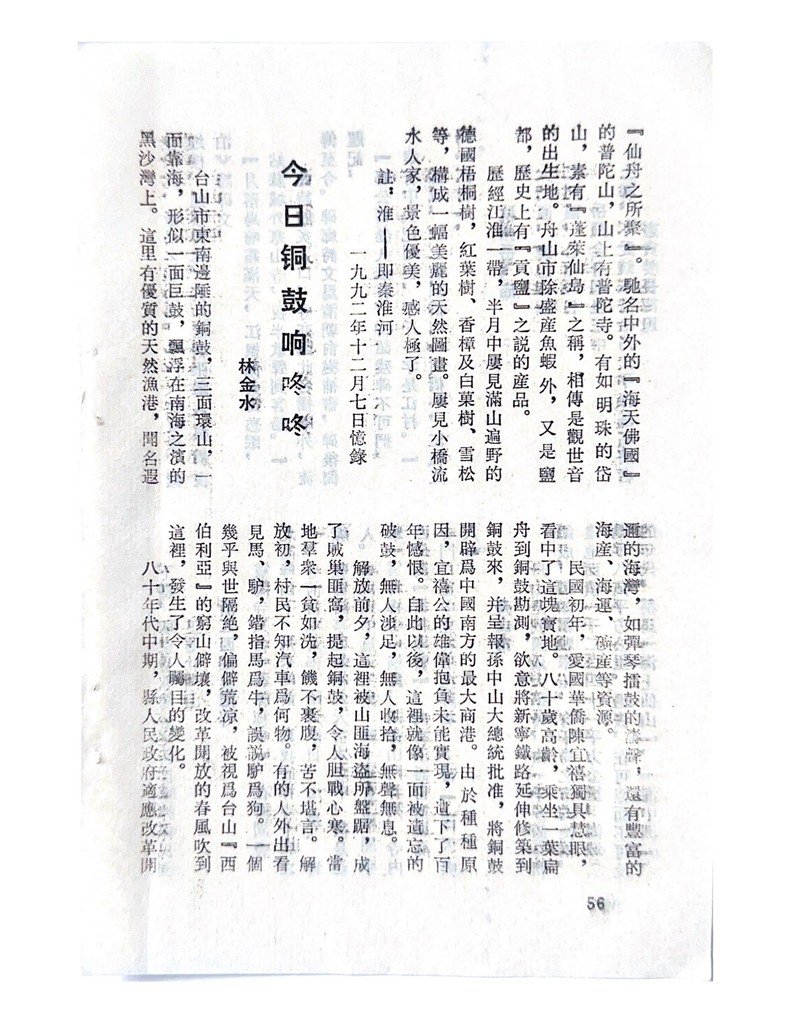 『仙舟之所聚』。馳名中外的『海天佛國』
的普陀山，山上有普陀寺。有如明珠的岱
山，素有『蓬萊仙島』之稱，相傳是觀世音
的出生地。舟山市除盛産魚蝦外，又是鹽
都，歷史上有『貢鹽』之説的産品。
歷經江淮一帶，半月中屢見滿山遍野的
德國梧桐樹，紅葉樹、香樟及白菓樹、雪松
等，構成一幅美麗的天然圖畫。屢見小橋流
水人家，景色優美，感人極了。
註，淮——即秦淮河
一九九二年十二月七日憶錄
今日铜鼓响咚咚
林金水
台山市東南邊陲的銅鼓，三面環山，一
面靠海，形似一面巨鼓，飄浮在南海之濱的
黑沙灣上。這里有優質的天然漁港，聞名遐
邇的海灣，如彈琴擂鼓的濤聲，還有豐富的
海産、海運、礦産等資源。
民國初年，愛國華僑陳宜禧獨具慧眼，
看中了這塊寶地。八十歲高齡，乘坐一葉扁
舟到銅鼓勘測，欲意將新寧鐵路延伸修築到
銅鼓來，并呈報孫中山大總統批准，將銅鼓
開辟爲中國南方的最大商港。由於種種原
因，宜禧公的雄偉抱負未能實現，遺下了百
年憾恨。自此以後，這裡就像一面被遺忘的
破鼓，無人涉足，無人收拾，無聲無息。
解放前夕，這裡被山匪海盜所盤踞，成
了賊巢匪窩，提起銅鼓，令人胆戰心寒。當
地羣衆一貧如洗，饑不裹腹，苦不堪言。解
放初，村民不知汽車爲何物。有的人外出看
見馬、驴，錯指馬爲牛，誤説驴爲狗。一個
幾乎與世隔絶，偏僻荒凉，被視爲台山『西
伯利亞』的窮山僻壤，改革開放的春風吹到
這裡，發生了令人矚目的變化。
八十年代中期，縣人民政府適應改革開
56